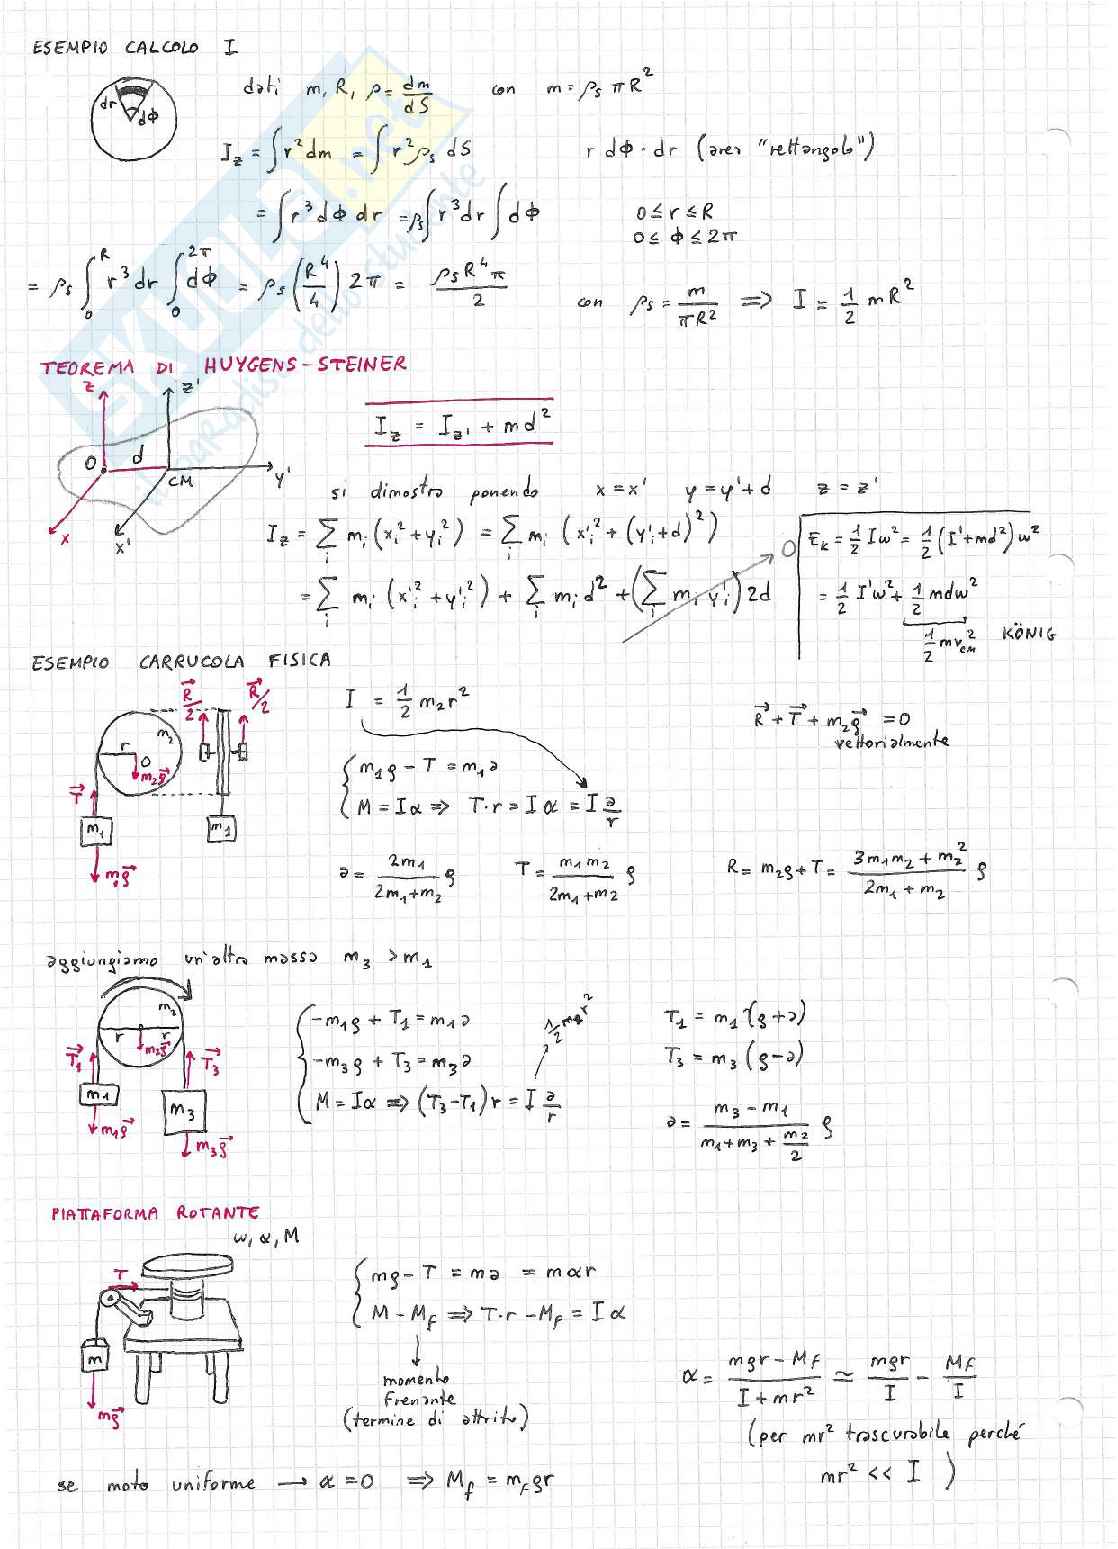 ESEMPIO CALCOLO I
dr dϕ
dati m, R, ρ = dm/dS con m = ρs πR²
Iz = ∫r²dm = ∫r²ρs dS r dϕ · dr (area "rettangolo")
= ∫r³dϕ dr = ρs∫r³dr∫dϕ 0 ≤ r ≤ R
0 ≤ ϕ ≤ 2π
= ρs ∫₀ᴿ r³dr ∫₀²π dϕ = ρs (R⁴/4) 2π = ρsR⁴π/2 con ρs = m/πR² => I = 1/2 mR²
TEOREMA DI HUYGENS-STEINER
z z' O d CM y' x x'
Iz = Iz' + md²
si dimostra ponendo x = x' y = y'+d z = z'
Iz = Σi mi(xi²+yi²) = Σi mi (x'i² + (y'i+d)²)
= Σi mi (x'i²+y'i²) + Σi mi d² + (Σi mi y'i) 2d 0
Ek = 1/2 Iω² = 1/2 (I'+md²)ω²
= 1/2 I'ω² + 1/2 mdω²
1/2 mvCM² KÖNIG
ESEMPIO CARRUCOLA FISICA
R/2 R/2 m₂ r O m₂g T m₁ m₁ m₁g
I = 1/2 m₂r²
R + T + m₂g = 0
vettorialmente
m₁g − T = m₁a
M = Iα => T·r = Iα = I a/r
a = 2m₁/(2m₁+m₂) g T = m₁m₂/(2m₁+m₂) g R = m₂g+T = (3m₁m₂ + m₂²)/(2m₁ + m₂) g
aggiungiamo un'altra massa m₃ > m₁
m₂ r r m₂g T₁ T₃ m₁ m₃ m₁g m₃g
−m₁g + T₁ = m₁a
−m₃g + T₃ = m₃a
M = Iα => (T₃−T₁)r = I a/r
T₁ = m₁(g+a)
T₃ = m₃(g−a)
a = (m₃ − m₁)/(m₁+m₃ + m₂/2) g
PIATTAFORMA ROTANTE
ω, α, M
T m mg
mg − T = ma = mαr
M − Mf => T·r − Mf = Iα
momento
frenante
(termine di attrito)
α = (mgr − Mf)/(I + mr²) ≃ mgr/I − Mf/I
(per mr² trascurabile perché
mr² << I )
se moto uniforme → α = 0 => Mf = mfgr
SKUOLA.net
il paradiso dello studente